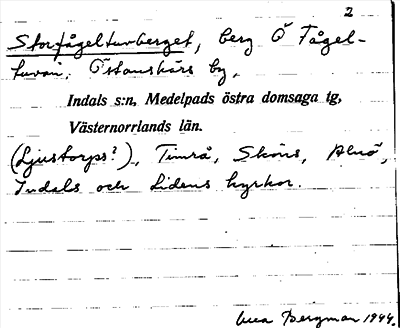 2
Storfågeltuvberget, berg Ö Fågel-
tuvan. Östanskärs by.
Indals s:n, Medelpads östra domsaga tg,
Västernorrlands län.
(Ljustorps?), Timrå, Sköns, Alnö,
Indals och Lidens kyrkor.
Bergman 1944.